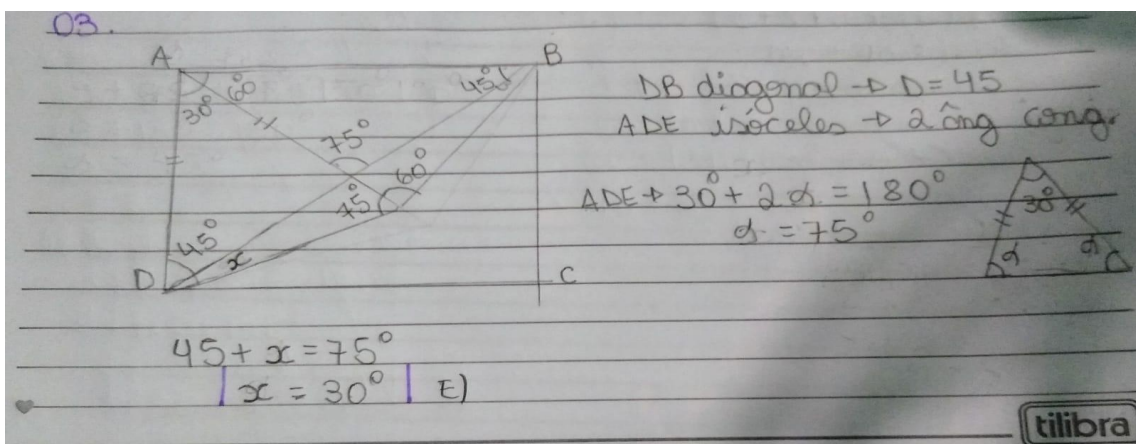 03.
A
B
30°
60°
45°
75°
60°
75°
45°
x
D
C
DB diagonal → D = 45
ADE isóceles → 2 âng cong.
ADE → 30° + 2α = 180°
α = 75°
30°
α
α
45 + x = 75°
| x = 30° | E)
tilibra